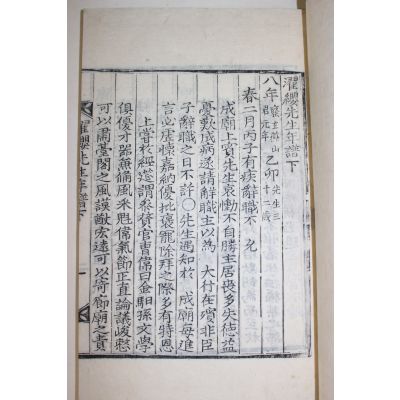 濯纓先生年譜下
八年 廢主燕山君元年 乙卯 先生三十二歲
春二月丙子有疾辭職不 允
成廟上賓先生哀慟不自勝主居喪多失德益
憂歎成病遂請辭職主以為 大行在殯非臣
子辭職之日不許○先生遇知於 成廟每進
言必虛懷嘉納優批褒寵除拜之際多有特恩
上嘗於經筵謂參贊官曺偉曰金馹孫文學
俱優才器兼備風采魁偉氣節正直論議峻整
可以肅臺閣之風謨猷宏遠可以荷廊廟之責
濯纓先生年譜下